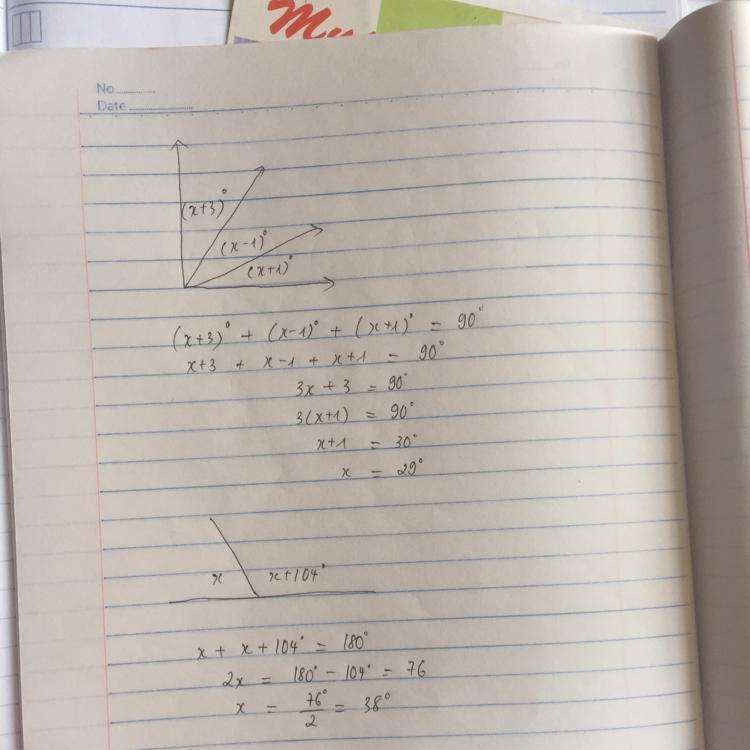 No
Date
(x+3)°
(x-1)°
(x+1)°
(x+3)° + (x-1)° + (x+1)° = 90°
x+3 + x-1 + x+1 = 90°
3x + 3 = 90°
3(x+1) = 90°
x+1 = 30°
x = 29°
x x+104°
x + x + 104° = 180°
2x = 180° - 104° = 76
x = 76°/2 = 38°